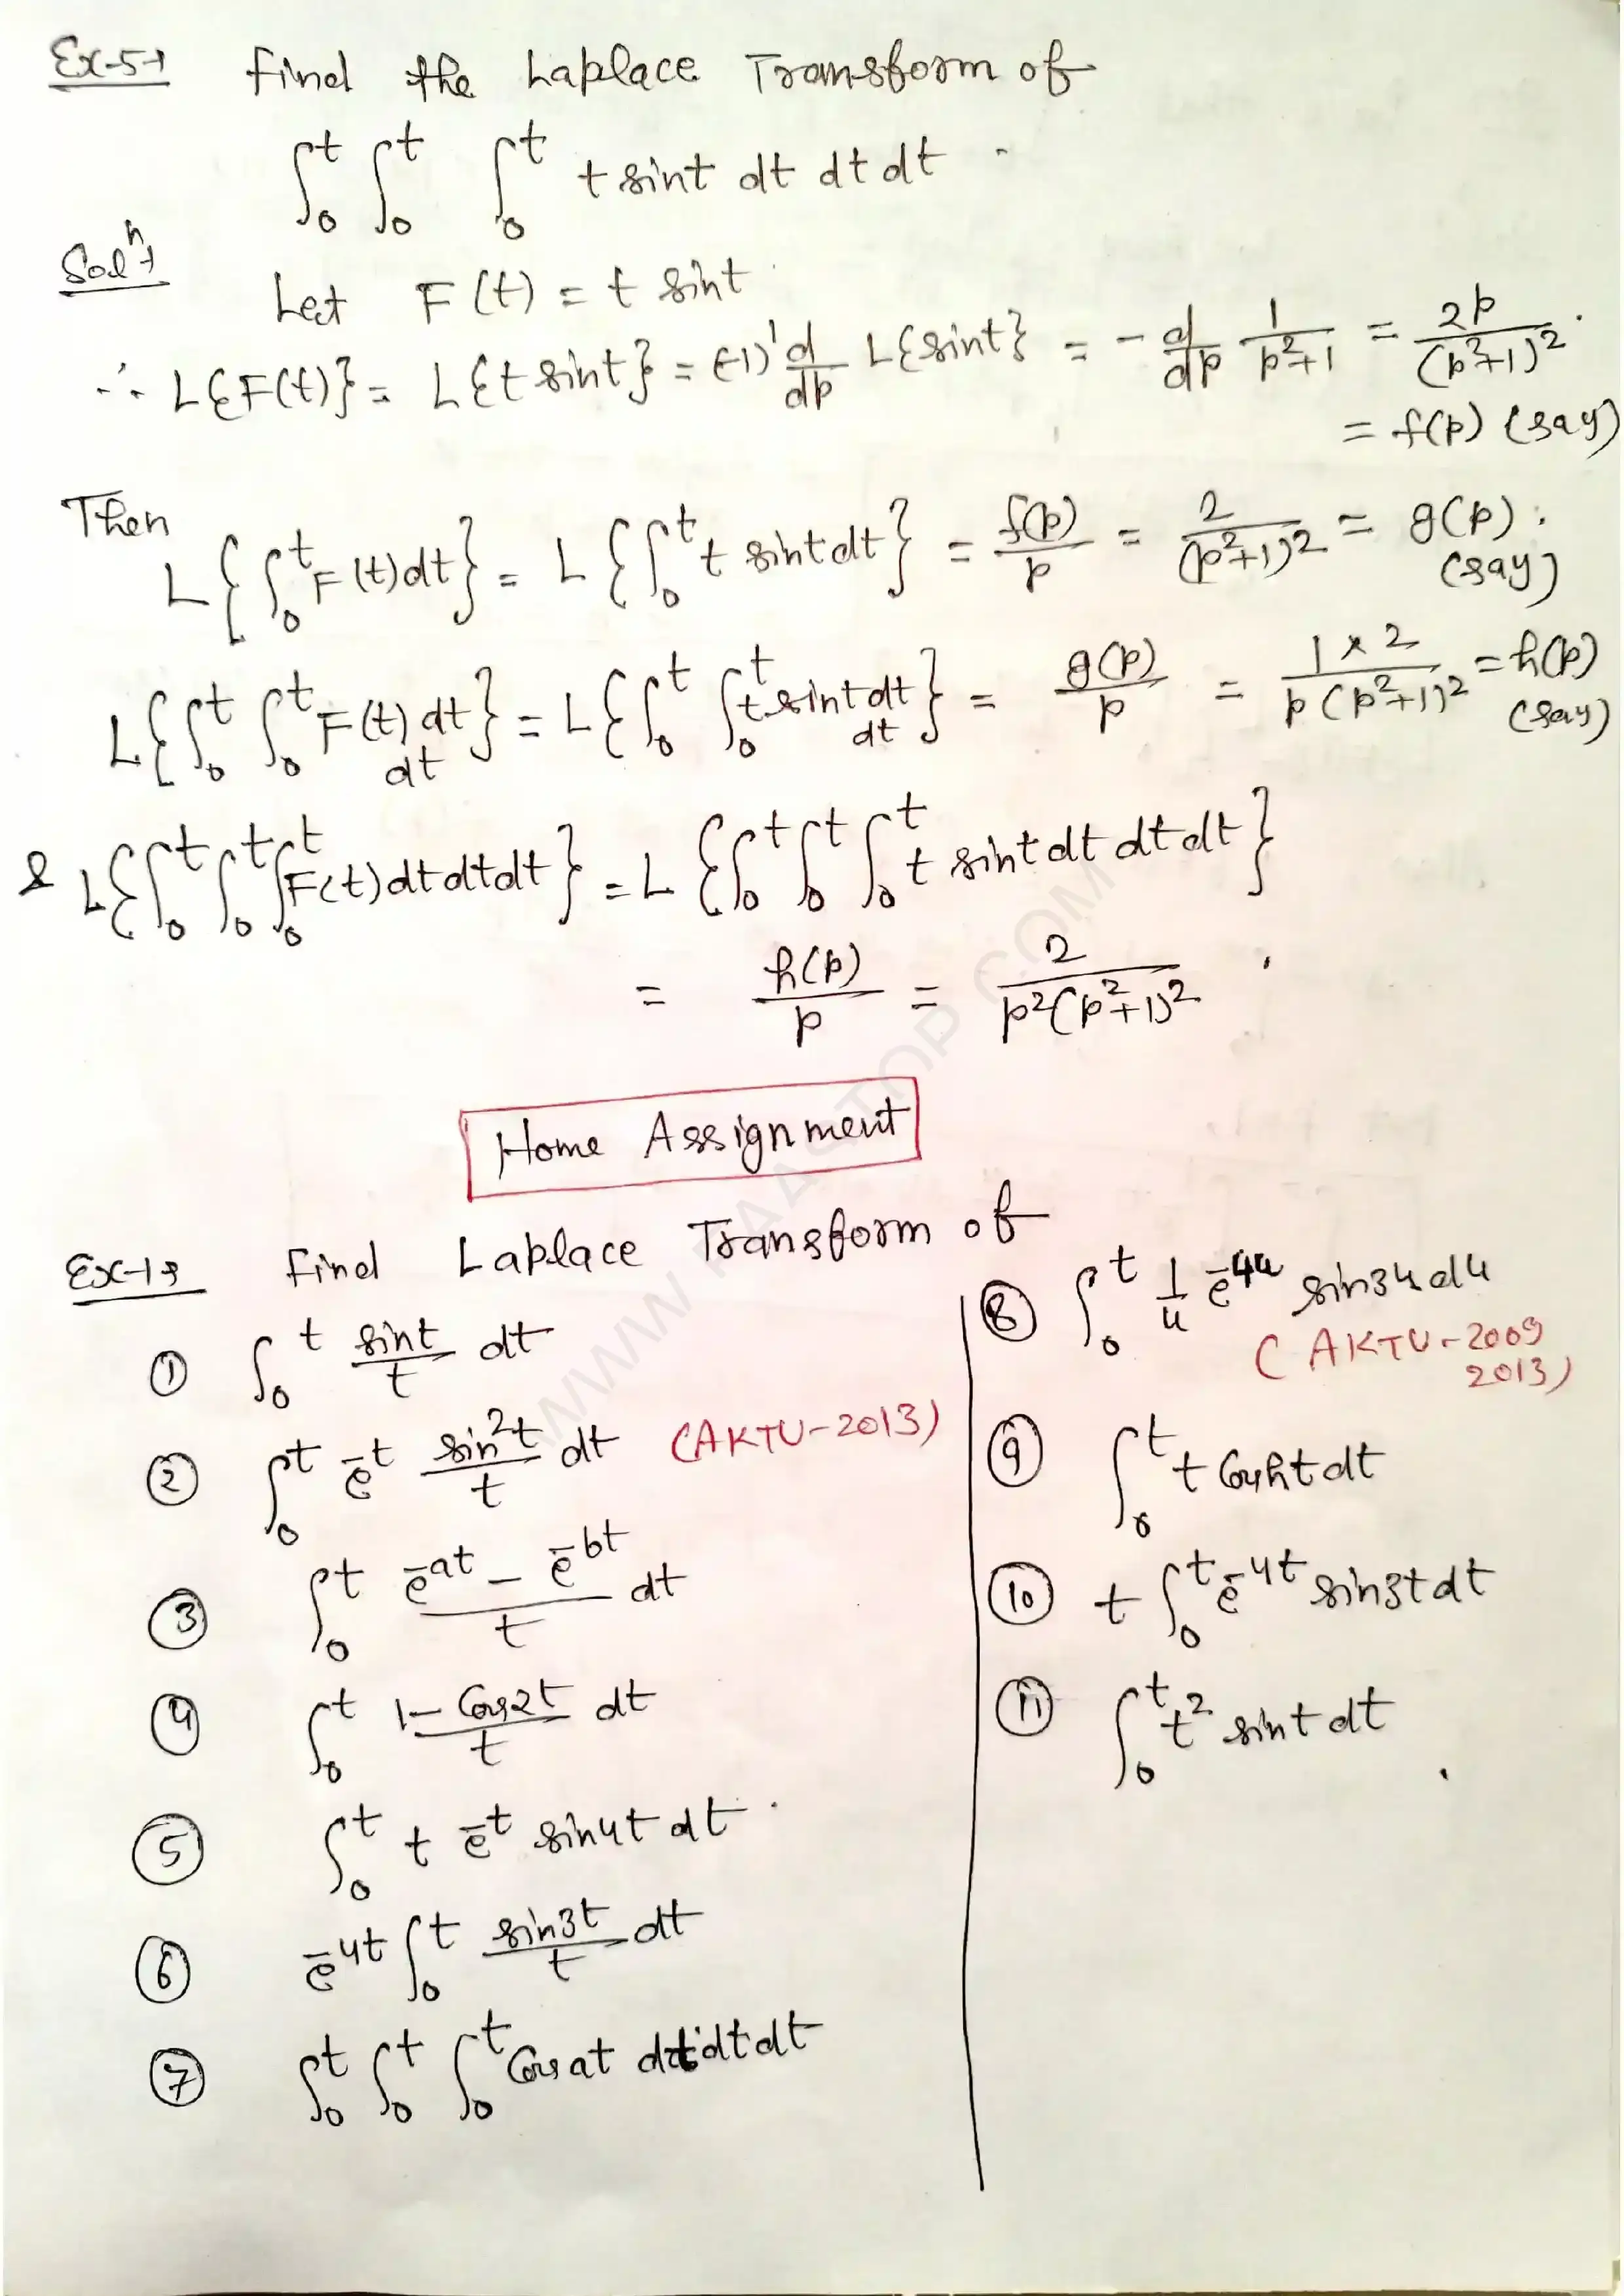 Ex-5→ Find the Laplace Transform of
∫₀ᵗ ∫₀ᵗ ∫₀ᵗ t sint dt dt dt .
Solⁿ→
Let F(t) = t sint
∴ L{F(t)} = L{t sint} = (-1)¹ d/dp L{sint} = - d/dp 1/(p²+1) = 2p/(p²+1)² .
= f(p) (say)
Then
L{∫₀ᵗ F(t)dt} = L{∫₀ᵗ t sint dt} = f(p)/p = 2/(p²+1)² = g(p) . (say)
L{∫₀ᵗ ∫₀ᵗ F(t) dt dt} = L{∫₀ᵗ ∫₀ᵗ t sint dt dt} = g(p)/p = 1×2/p(p²+1)² = h(p) (say)
& L{∫₀ᵗ ∫₀ᵗ ∫₀ᵗ F(t) dt dt dt} = L{∫₀ᵗ ∫₀ᵗ ∫₀ᵗ t sint dt dt dt}
= h(p)/p = 2/p²(p²+1)² .
Home Assignment
Ex-1→ Find Laplace Transform of
① ∫₀ᵗ sint/t dt
② ∫₀ᵗ e⁻ᵗ sin²t/t dt (AKTU-2013)
③ ∫₀ᵗ (e⁻ᵃᵗ - e⁻ᵇᵗ)/t dt
④ ∫₀ᵗ (1-Cos2t)/t dt
⑤ ∫₀ᵗ t e⁻ᵗ sin4t dt .
⑥ e⁻⁴ᵗ ∫₀ᵗ sin3t/t dt
⑦ ∫₀ᵗ ∫₀ᵗ ∫₀ᵗ Cos at dt dt dt
⑧ ∫₀ᵗ 1/u e⁻⁴ᵘ sin3u du
(AKTU-2009
2013)
⑨ ∫₀ᵗ t Cosht dt
⑩ t ∫₀ᵗ e⁻⁴ᵗ sin3t dt
⑪ ∫₀ᵗ t² sint dt .